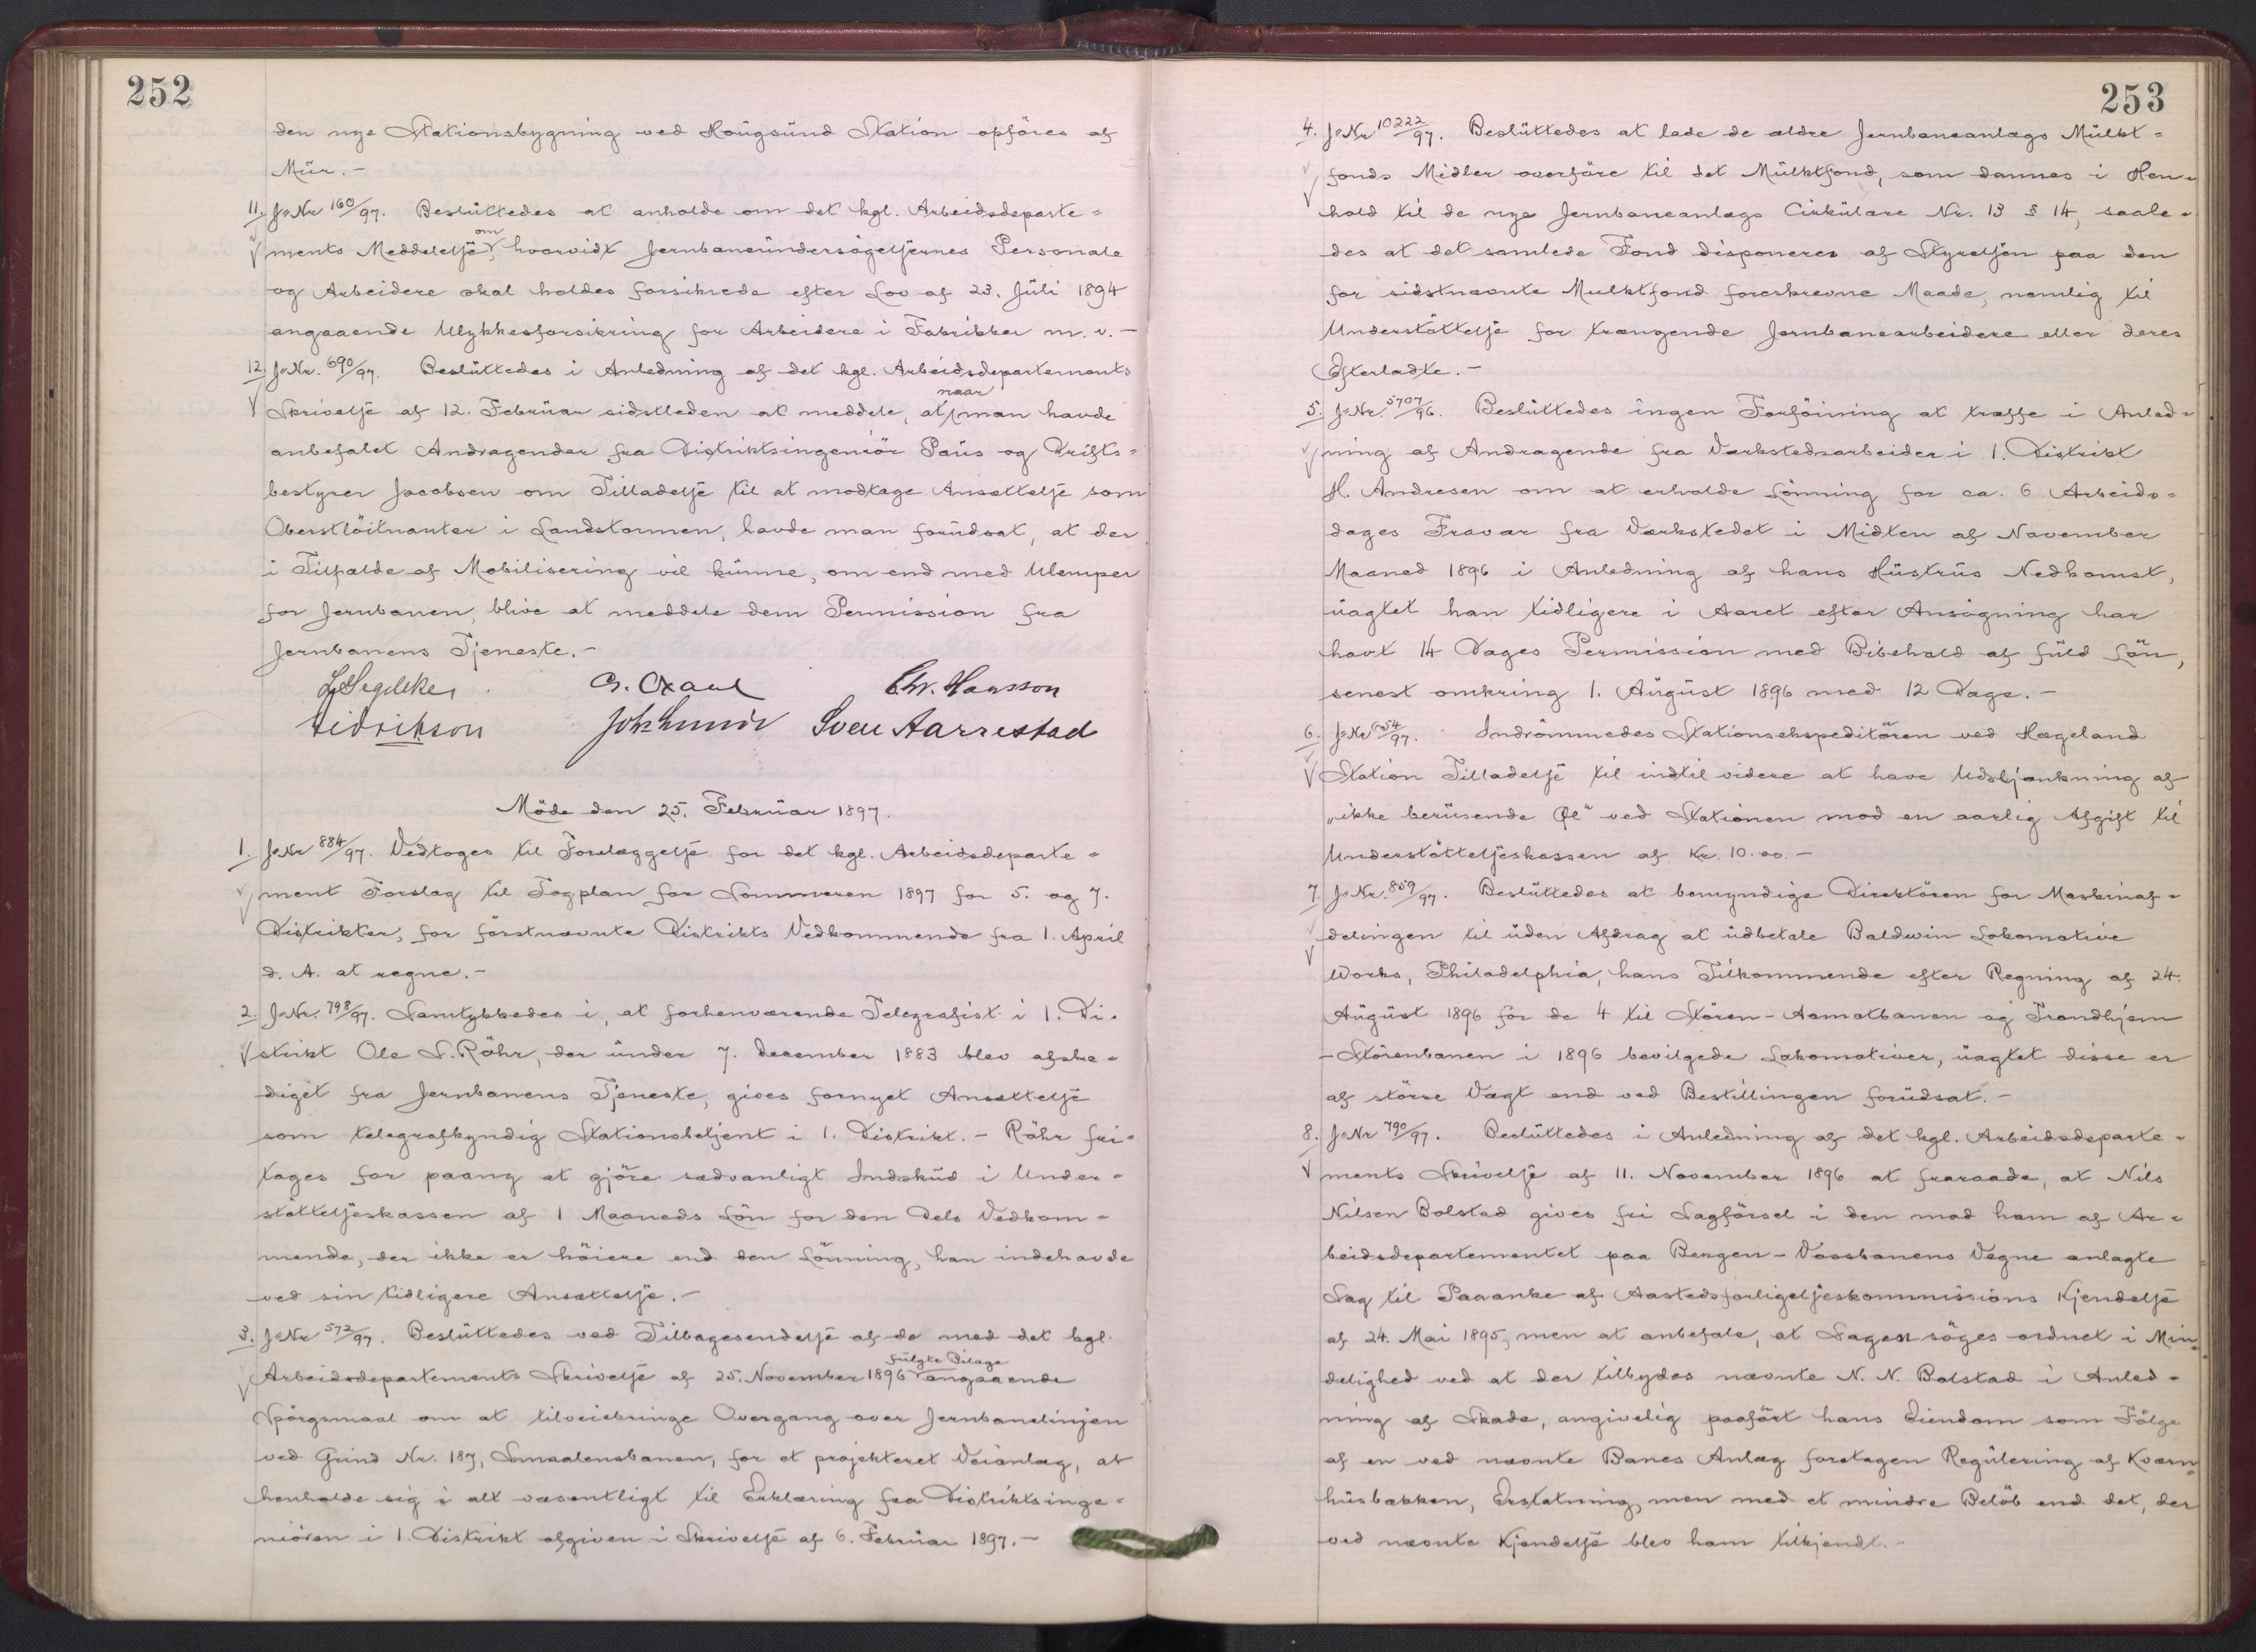 252
den nye Stationsbygning ved Hougsund Station opföres af
Mur.-
11. J=Nr 160/97. Besluttedes at anholde om det kgl. Arbeidsdeparte=
ments Meddelelse om hvorvidt Jernbaneundersögelsernes Personale
og Arbeidere skal holdes forsikrede efter Lov af 23. Juli 1894
angaaende Ulykkesforsikring for Arbeidere i Fabrikker m. v.-
12. J=Nr. 690/97. Besluttedes i Anledning af det kgl. Arbeidsdepartements
Skrivelse af 12. Februar sidstleden at meddele, at naar man havde
anbefalet Andragender fra Distriktsingeniör Paus og Drifts=
bestyrer Jacobsen om Tilladelse til at modtage Ansættelse som
Oberstlöitnanter i Landstormen, havde man forudsat, at der
i Tilfælde af Mobilisering vil kunne, om end med Ulemper
for Jernbanen, blive at meddele dem Permission fra
Jernbanens Tjeneste.-
Chr. Hansson
Didrikson Joh. Lunde Sven Aarrestad
Möde den 25. Februar 1897.
1. J=Nr 884/97. Vedtoges til Forelæggelse for det kgl. Arbeidsdeparte=
ment Forslag til Togplan for Sommeren 1897 for 5. og 7.
Distrikter, for förstnævnte Distrikts Vedkommende fra 1. April
d. A. at regne.-
2. J=Nr. 798/97. Samtykkedes i, at forhenværende Telegrafist i 1. Di=
strikt Ole S. Röhr, der under 7. December 1883 blev afske=
diget fra Jernbanens Tjeneste, gives fornyet Ansættelse
som telegrafkyndig Stationsbetjent i 1. Distrikt.- Röhr fri=
tages for paany at gjöre sædvanligt Indskud i Under=
stöttelseskassen af 1 Maaneds Lön for den Dels Vedkom=
mende, der ikke er höiere end den Lönning, han indehavde
ved sin tidligere Ansættelse.-
3. J=Nr 572/97. Besluttedes ved Tilbagesendelse af de med det kgl.
Arbeidsdepartements Skrivelse af 25. November 1896 fulgte Bilage angaaende
Spörgsmaal om at tilveiebringe Overgang over Jernbanelinjen
ved Grind Nr. 187, Smaalensbanen, for et projekteret Veianlæg, at
henholde sig i alt væsentligt til Erklæring fra Distriktsinge=
niören i 1. Distrikt afgiven i Skrivelse af 6. Februar 1897.-
253
4. J=Nr 10222/97. Besluttedes at lade de ældre Jernbaneanlægs Mulkt=
fonds Midler overföre til det Mulktfond, som dannes i Hen=
hold til de nye Jernbaneanlægs Cirkulære Nr. 13 § 14, saale=
des at det samlede Fond disponeres af Styrelsen paa den
for sidstnævnte Mulktfond foreskrevne Maade, nemlig til
Understöttelse for trængende Jernbanearbeidere eller deres
Efterladte.-
5. J=Nr. 5707/96. Besluttedes ingen Forföining at træffe i Anled=
ning af Andragende fra Værkstedsarbeider i 1. Distrikt
H. Andresen om at erholde Lönning for ca. 6 Arbeids=
dages Fravær fra Værkstedet i Midten af November
Maaned 1896 i Anledning af hans Hustrus Nedkomst,
uagtet han tidligere i Aaret efter Ansögning har
havt 14 Dages Permission med Bibehold af fuld Lön,
senest omkring 1. August 1896 med 12 Dage.-
6. J=Nr 654/97. Indrömmedes Stationsekspeditören ved Hægeland
Station Tilladelse til indtil videre at have Udskjænkning af
„ikke berusende Øl" ved Stationen mod en aarlig Afgift til
Understöttelseskassen af Kr. 10.00.-
7. J=Nr. 859/97. Besluttedes at bemyndige Direktören for Maskinaf=
delingen til uden Afdrag at udbetale Baldwin Lokomotive
Works, Philadelphia, hans Tilkommende efter Regning af 24.
August 1896 for de 4 til Stören-Aamotbanen og Trondhjem
-Störenbanen i 1896 bevilgede Lokomotiver, uagtet disse er
af större Vægt end ved Bestillingen forudsat.-
8. J=Nr 790/97. Besluttedes i Anledning af det kgl. Arbeidsdeparte=
ments Skrivelse af 11. November 1896 at fraraade, at Nils
Nilsen Bolstad gives fri Sagförsel i den mod ham af Ar=
beidsdepartementet paa Bergen-Vossbanens Vegne anlagte
Sag til Paaanke af Aastedsforligelseskommissions Kjendelse
af 24. Mai 1895, men at anbefale, at Sagen söges ordnet i Min=
delighed ved at der tilbydes nævnte N. N. Bolstad i Anled=
ning af Skade, angivelig paafört hans Eiendom som Fölge
af en ved nævnte Banes Anlæg foretagen Regulering af Kværn=
husbækken, Erstatning, men med et mindre Belöb end det, der
ved nævnte Kjendelse blev ham tilkjendt.-